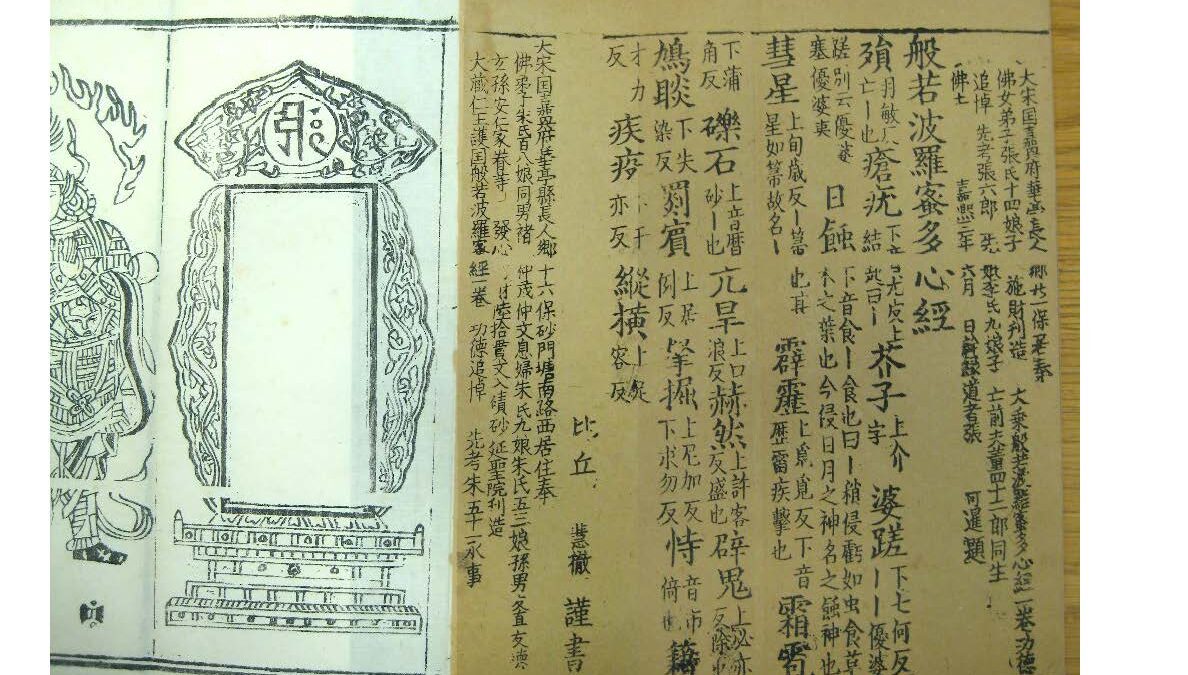 大宋国嘉興府華亭長人鄉北一保居奉
佛女弟子張氏十四娘子 施財刋造 大乗般若波羅蜜多心經一卷功德
追悼 先考張六郎 先妣李氏九娘子 亡前夫董四十二郎同生
佛土 嘉熙三年六月 日幹縁道者張 可暹 題
般若波羅蜜多心經
殞 羽敏反亡丨也 瘡疣 芥子 上介字 婆蹉 下七何反丨丨優婆
蹉別云優婆塞優婆夷 日蝕 下音食丨食也曰丨稍侵虧如虫食草木之葉也今侵日月之神名之蝕神也
彗星 上旬歲反丨箒星如箒故名丨也 霹靂 上疋覓反下音歷雷疾擊也 霜雹
下蒲角反 礫石 上音曆砂丨也 亢旱 上口浪反 赫然 上許客反盛也 辟鬼
鳩睒 下失染反 罽賓 上居例反 拏掘 上尼加反下求勿反 恃 音市倚也 藉
才力反 疾疫 縱横
比丘 慧徹 謹書
大宋国嘉興府華亭縣長人鄉十六保砂門塘南路西居住奉
佛弟子朱氏百八娘同男褚仲茂仲文息婦朱氏九娘朱氏五三娘孫男
玄孫安仁家眷等 發心 陸拾貫文入磧砂延聖院刋造
大藏仁王護国般若波羅蜜經一卷 功德追悼 先考朱五十一承事